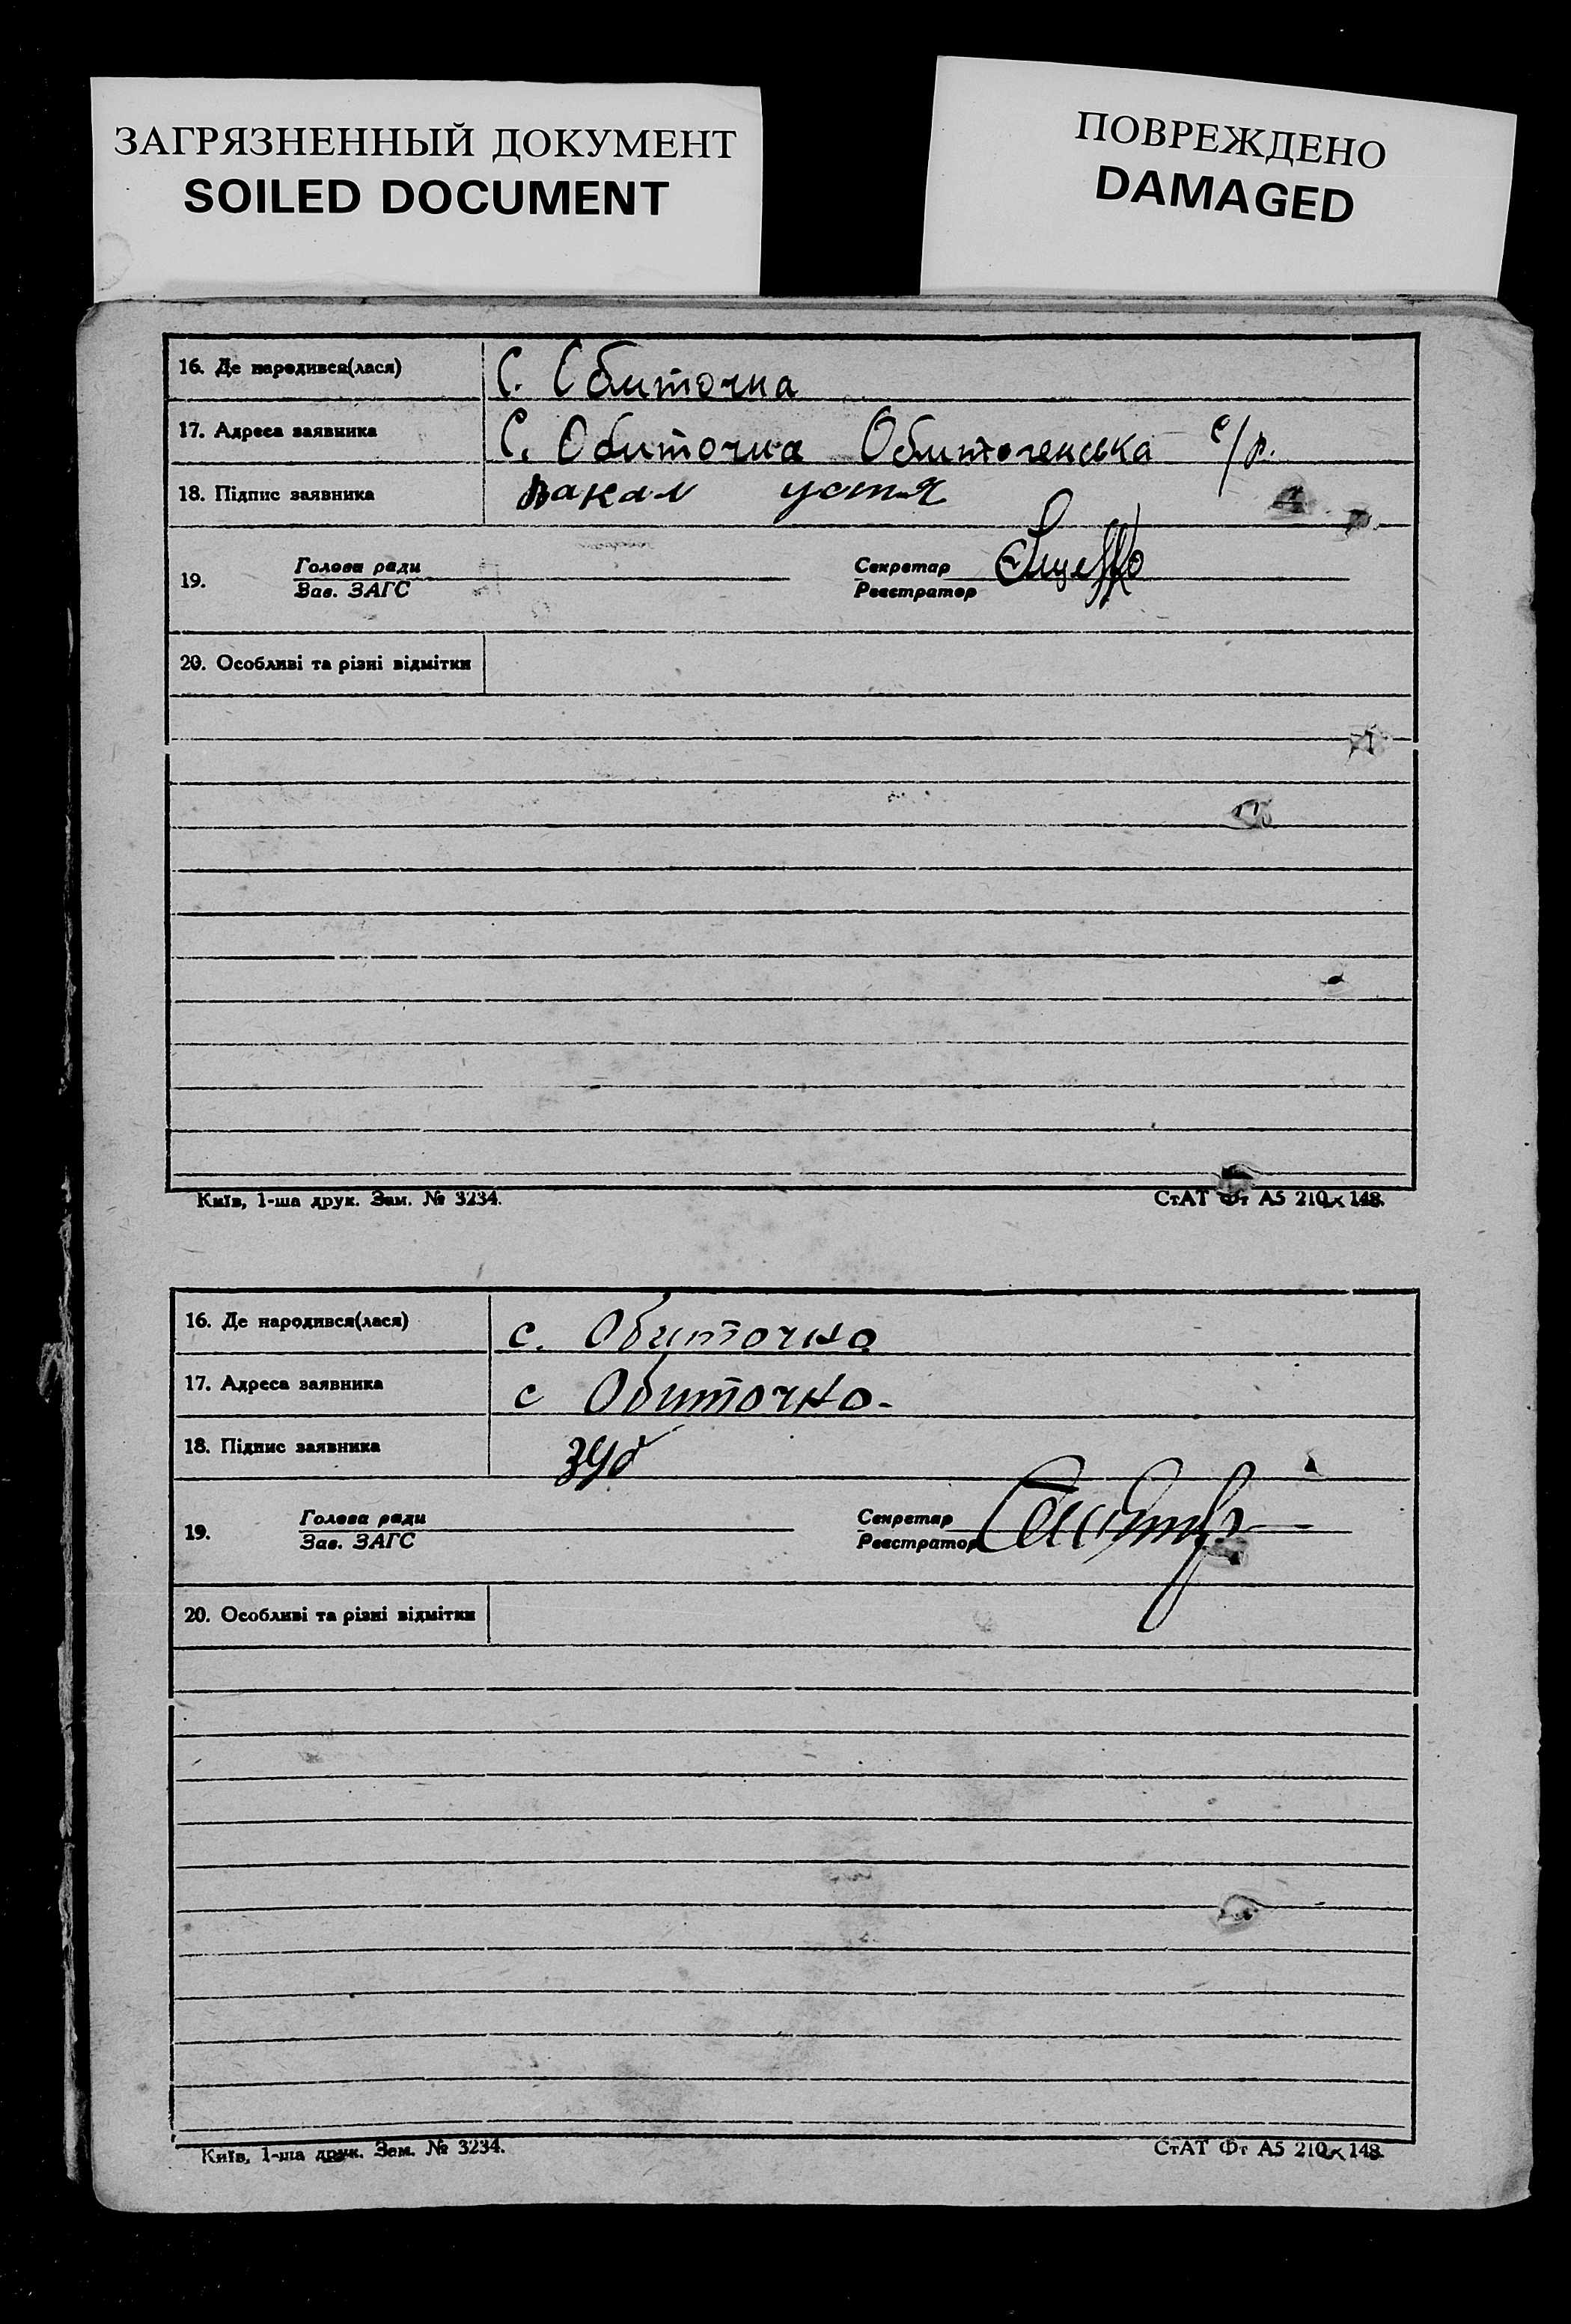 ЗАГРЯЗНЕННЫЙ ДОКУМЕНТ
SOILED DOCUMENT
ПОВРЕЖДЕНО
DAMAGED
16. Де народився(лася) С. Обиточна
17. Адреса заявника С. Обиточна Обиточенська с/р.
18. Підпис заявника
19. Голова ради Секретар
Зав. ЗАГС Реєстратор
20. Особливі та різні відмітки
Київ, 1-ша друк. Зам. № 3234. СтАТ Фт А5 210×148.
16. Де народився(лася) с. Обиточна
17. Адреса заявника с Обиточна-
18. Підпис заявника Зуб
19. Голова ради Секретар
Зав. ЗАГС Реєстратор
20. Особливі та різні відмітки
Київ, 1-ша друк. Зам. № 3234. СтАТ Фт А5 210×148.